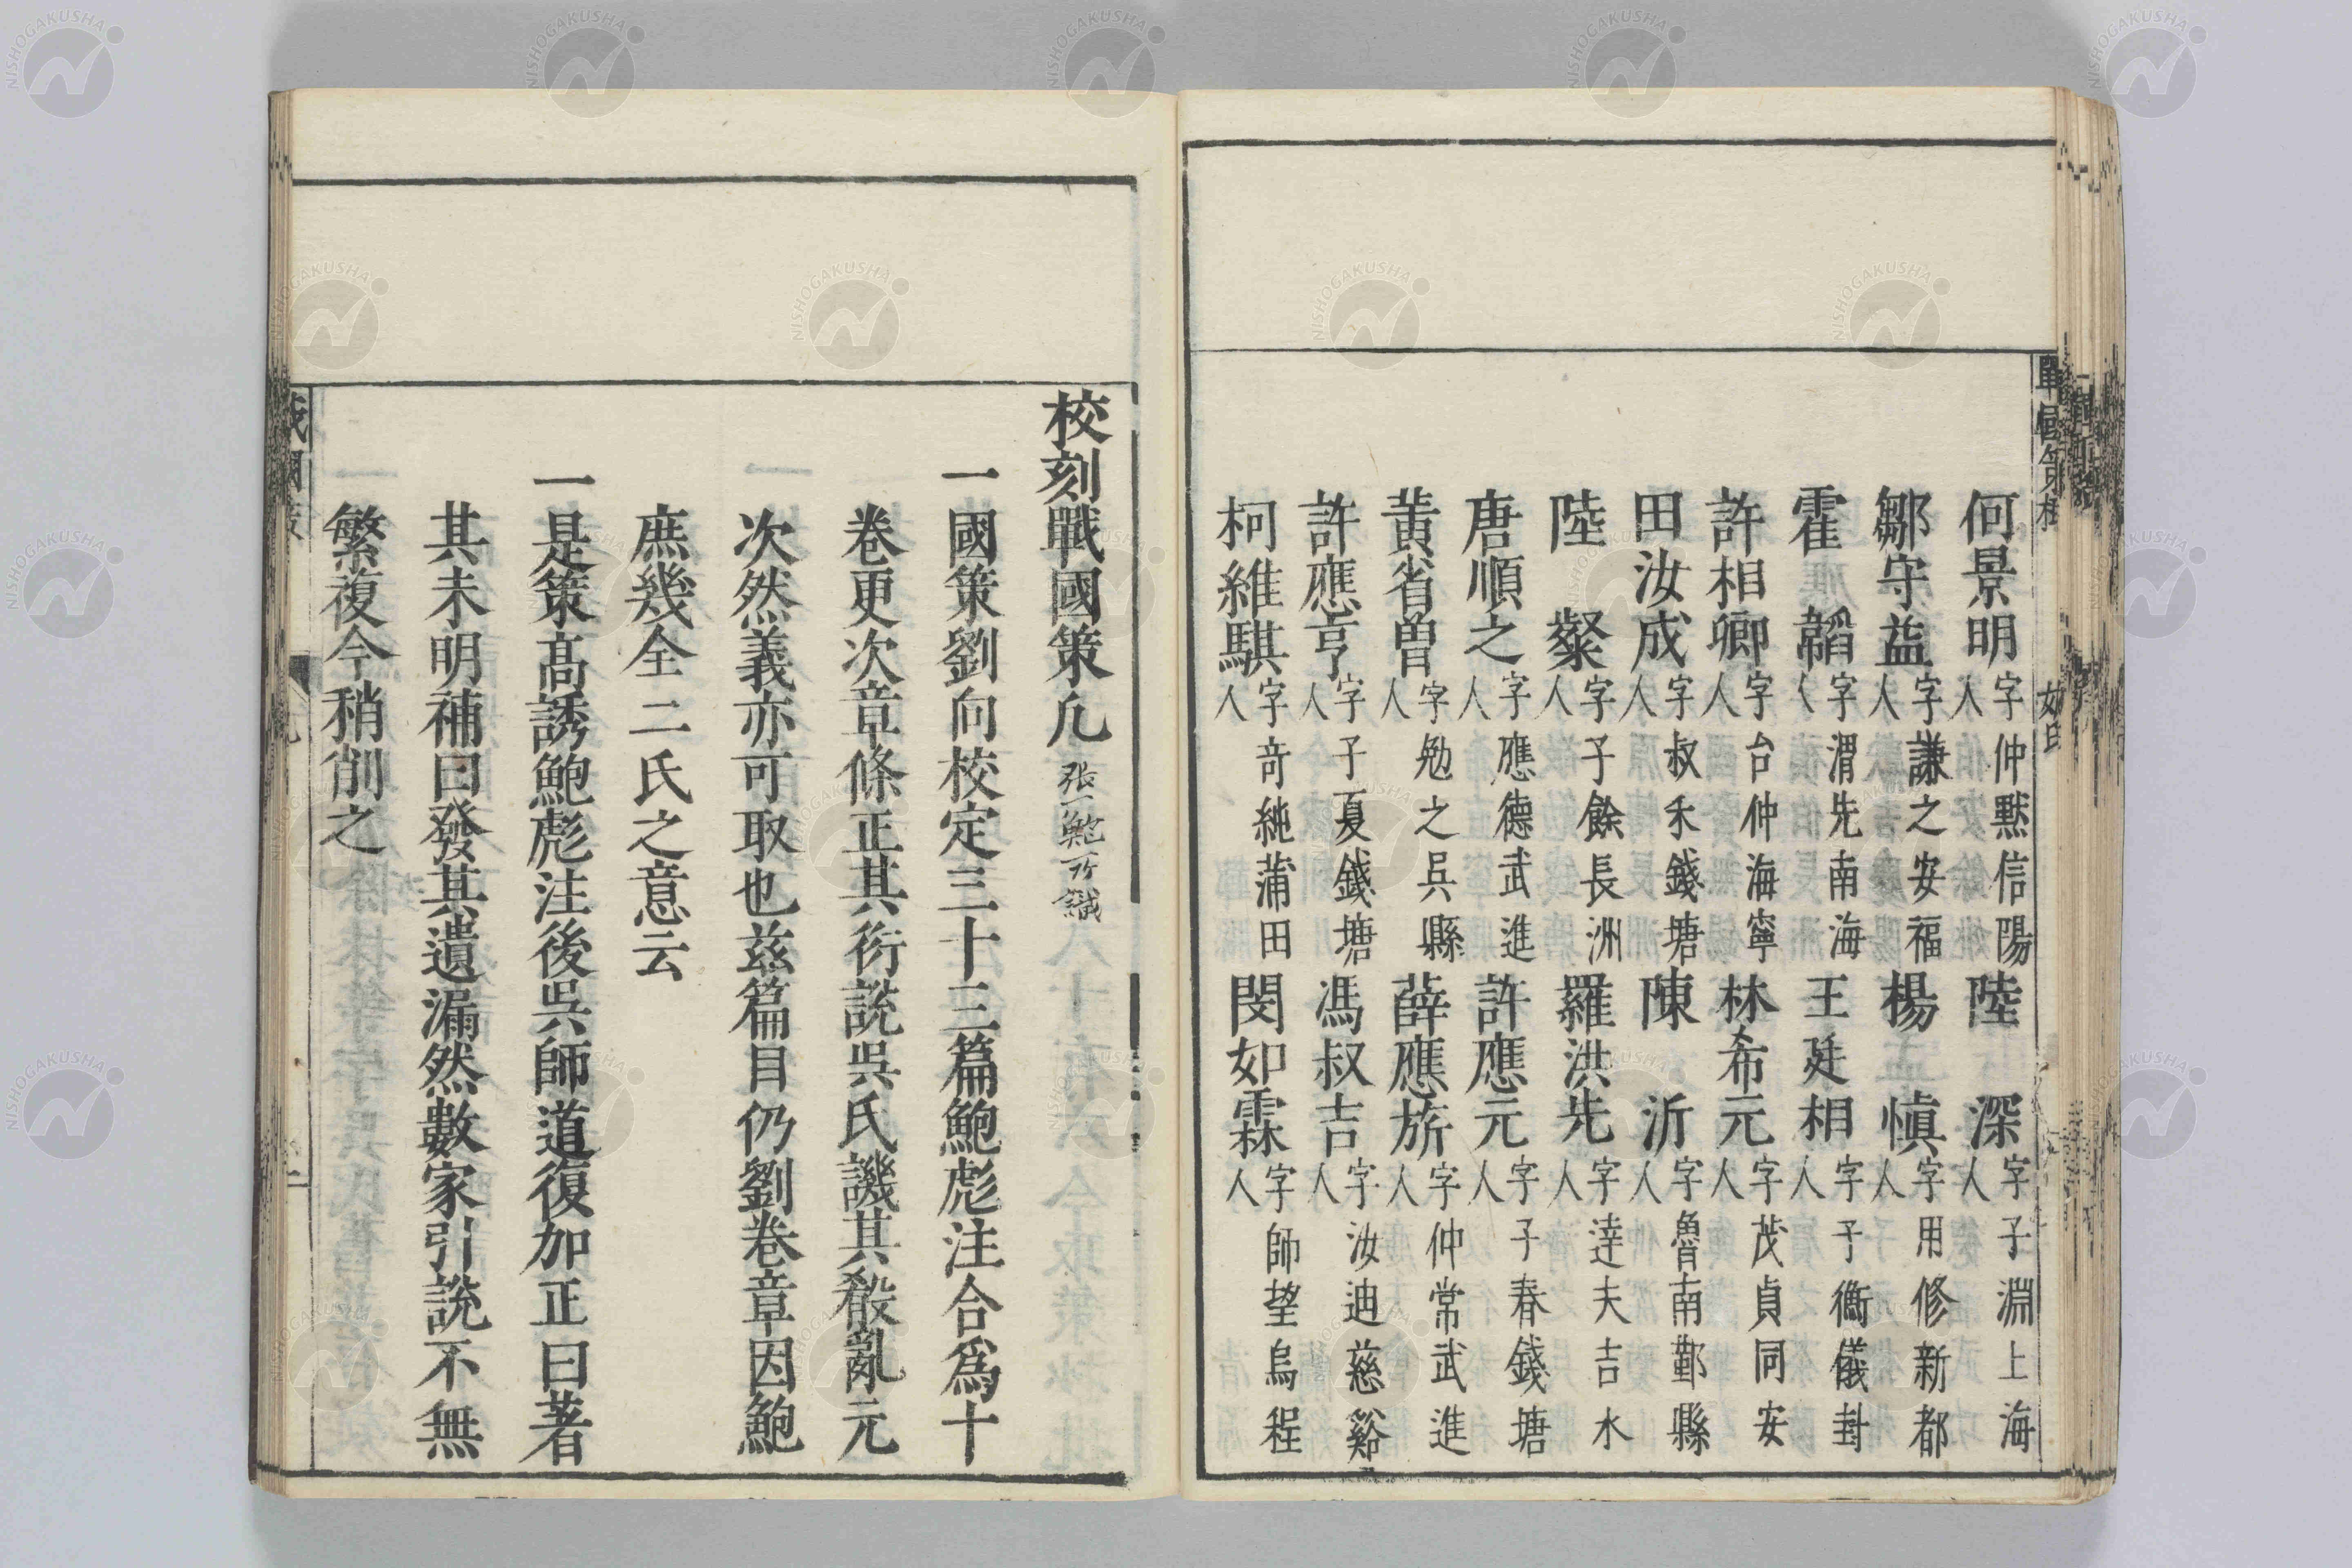 何景明 字仲黙信陽人 陸 深 字子淵上海人
鄒守益 字謙之安福人 楊 慎 字用修新都人
霍 韜 字渭先南海人 王廷相 字子衡儀封人
許相卿 字台仲海寧人 林希元 字茂貞同安人
田汝成 字叔禾錢塘人 陳 沂 字魯南鄞縣人
陸 粲 字子餘長洲人 羅洪先 字達夫吉水人
唐順之 字應德武進人 許應元 字子春錢塘人
黃省曽 字勉之吳縣人 薛應旂 字仲常武進人
許應亨 字子夏錢塘人 馮叔吉 字汝迪慈谿人
柯維騏 字竒純蒲田人 閔如霖 字師望烏程人
校刻戰國策凡
一國策劉向校定三十三篇鮑彪注合爲十
卷更次章條正其衍說吳氏譏其殽亂元
次然義亦可取也茲篇目仍劉卷章因鮑
庶幾全二氏之意云
一是策高誘鮑彪注後吳師道復加正曰著
其未明補曰發其遺漏然數家引說不無
繁複今稍削之
NISHOGAKUSHA